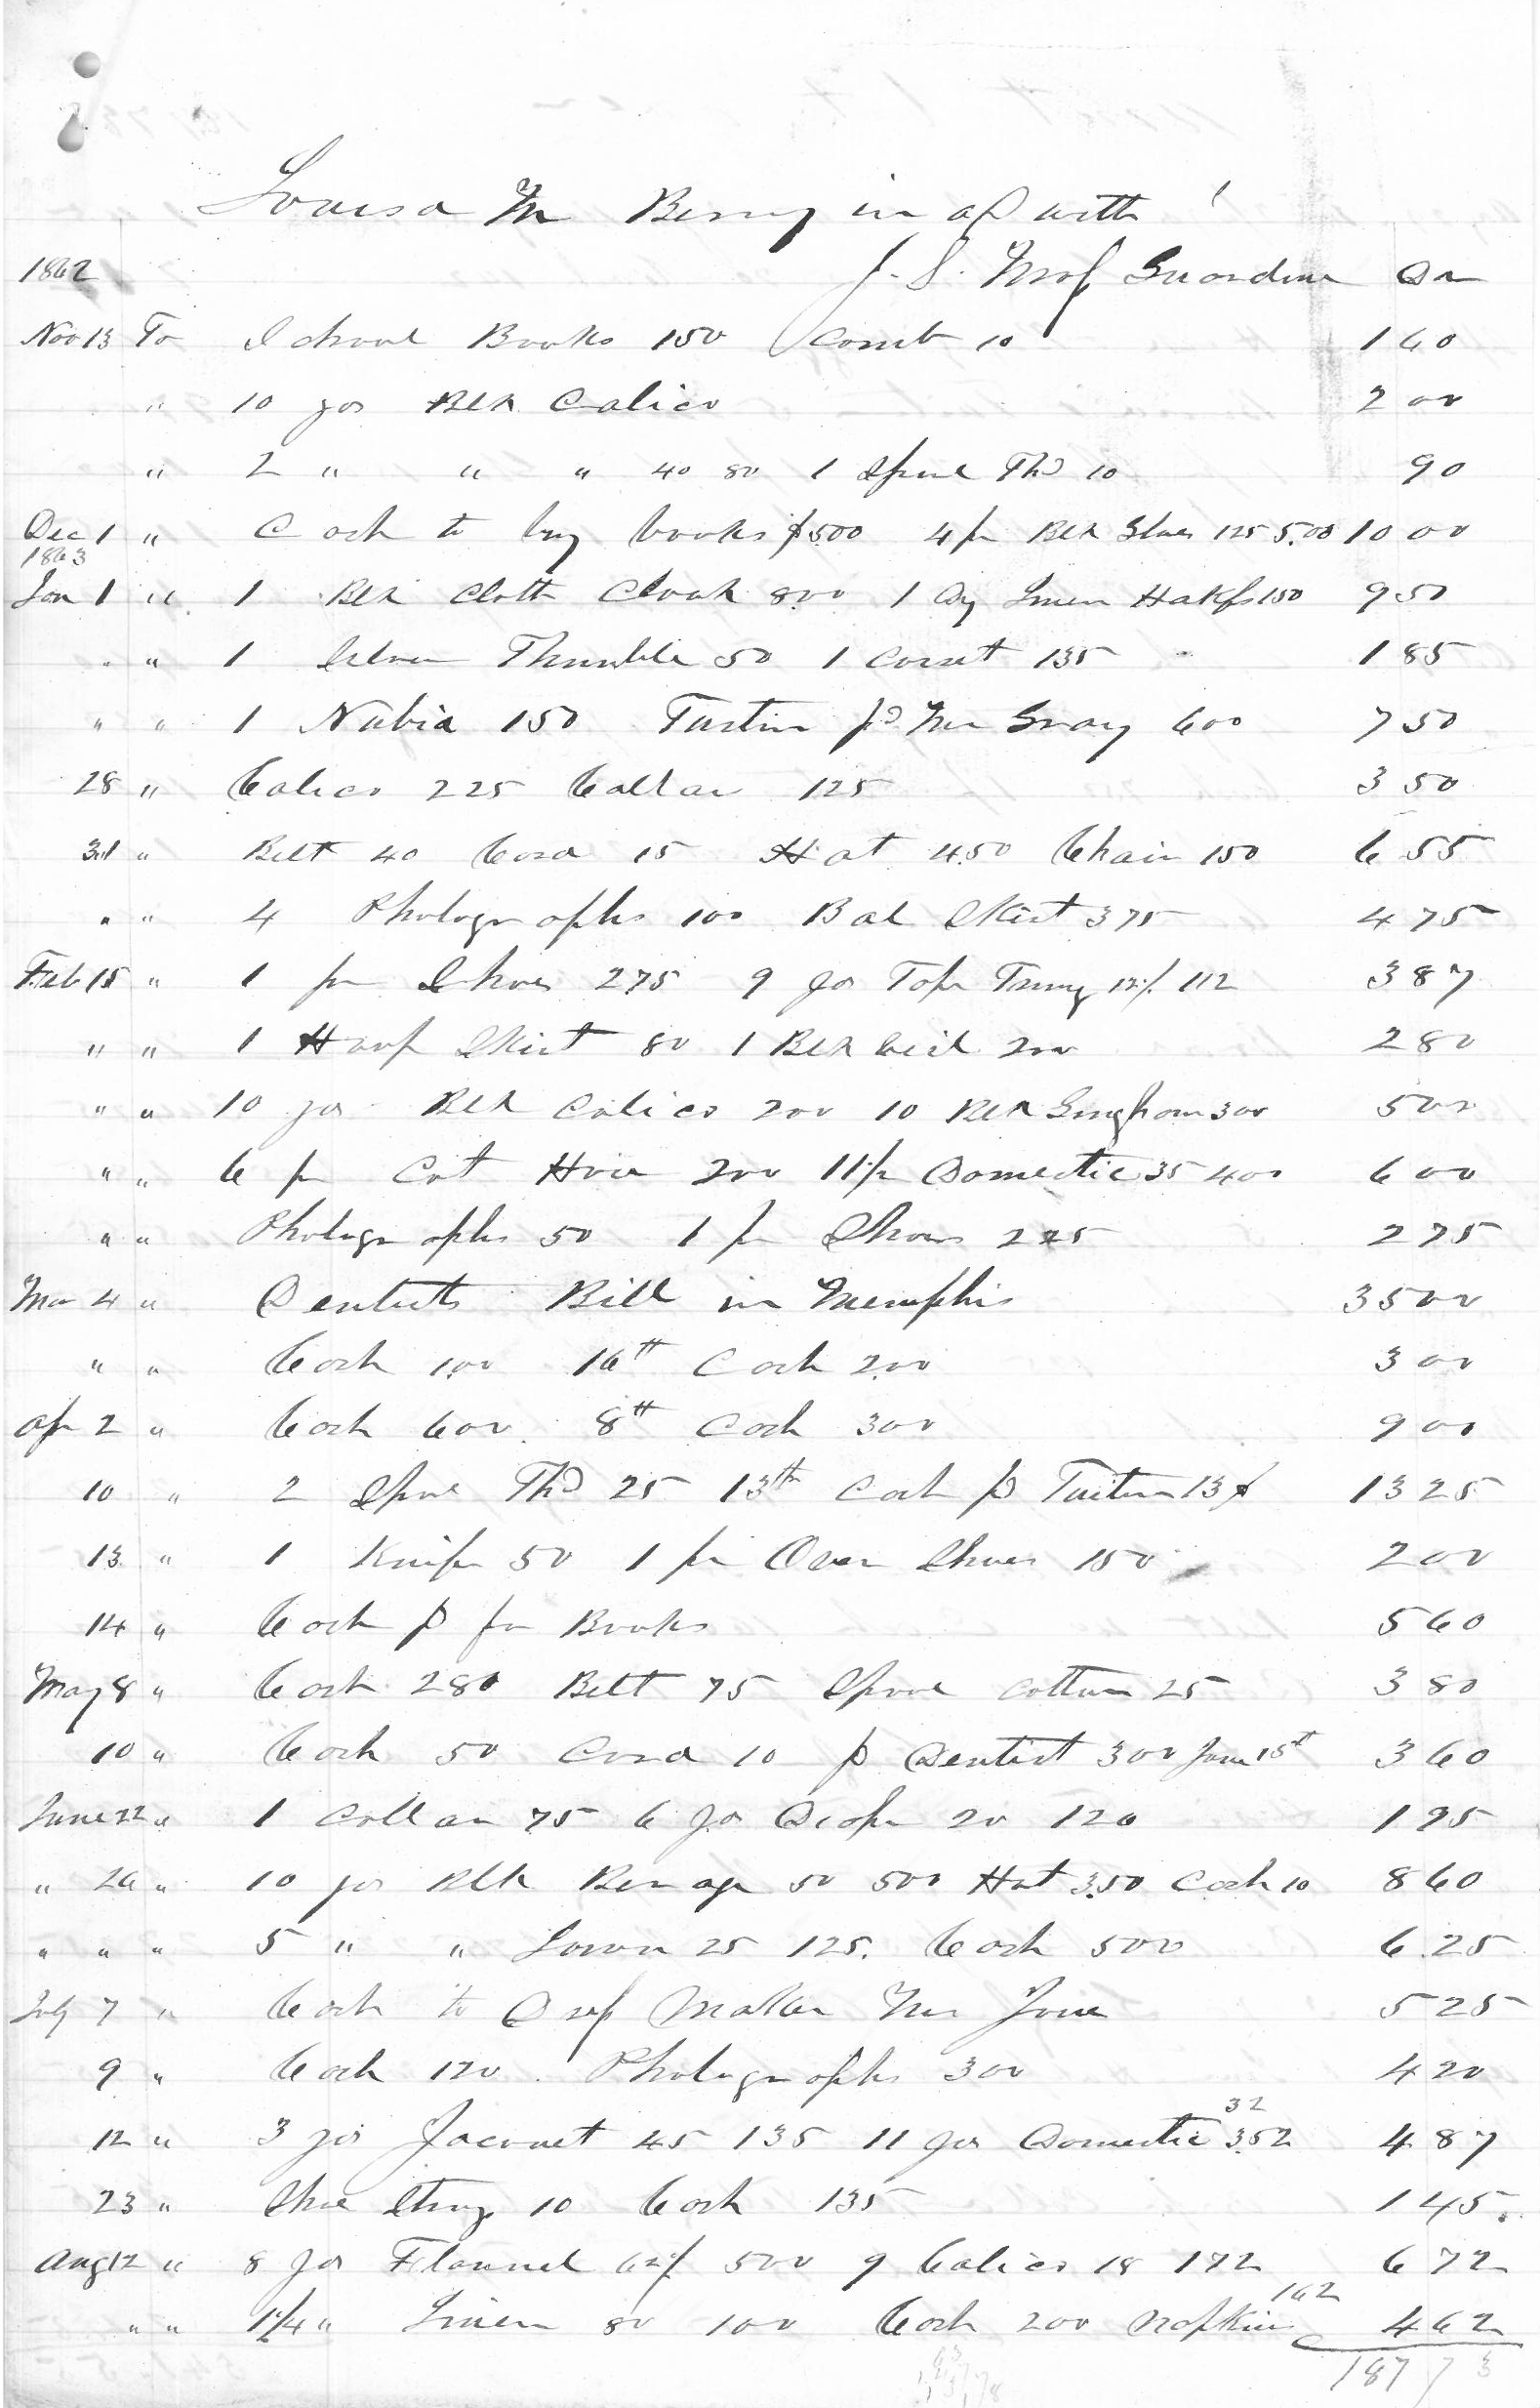 Louisa M Berry in a/c with
1862 J. S. Guardian Dr
Nov 13 To School Books 150 Comb 10 1 60
" 10 yds Blk Calico 2 00
" 2 " " " 40 80 1 Spool Thd 10 90
Dec 1 " Cash to buy books $5.00 4 pr Blk Gloves 125 5.00 10 00
1863
Jan 1 " 1 Blk Cloth Cloak 8.00 1 Linen Hdkfs 150 9 50
" " 1 Silver Thimble 50 1 Corset 135 1 85
" " 1 Nubia 150 Tuition pd Gray 600 7 50
28 " Calico 225 Collar 125 3 50
31 " Belt 40 Cord 15 Hat 4.50 Chain 150 6 55
" " 4 Photographs 100 Bal Skirt 375 4 75
Feb 15 " 1 pr Shoes 275 9 yds Trimg 12½ 112 3 87
" " 1 Hoop Skirt 80 1 Blk Veil 200 2 80
" " 10 yds Blk Calico 200 10 Blk Gingham 300 5 00
" " 6 pr Cot Hose 200 11½ Domestic 35 400 6 00
" " Photographs 50 1 pr Shoes 225 2 75
Mar 4 " Dentists Bill in Memphis 35 00
" " Cash 1.00 16th Cash 2.00 3 00
Ap 2 " Cash 600. 8th Cash 300 9 00
10 " 2 Spool Thd 25 13th Cash pd Tuition 13$ 13 25
13 " 1 Knife 50 1 pr Over Shoes 150 2 00
14 " Cash pd for Books 5 60
May 8 " Cash 280 Belt 75 Spool Cotton 25 3 80
10 " Cash 50 Cord 10 pd Dentist 300 June 15th 3 60
June 22 " 1 Collar 75 6 yds 20 120 1 95
" 26 " 10 yds Blk Berage 50 500 Hat 3.50 Cash 10 8 60
" " " 5 " " Lawn 25 125. Cash 500 6 25
July 7 " Cash to Dress Maker 5 25
9 " Cash 120. Photographs 300 4 20
12 " 3 yds Jaconet 45 135 11 yds Domestic 32 3.52 4 87
23 " Shoe String 10 Cash 135 1 45.
Aug 12 " 8 yds Flannel 62½ 500 9 Calico 18 172 6 72
" " 1¼ " Linen 80 100 Cash 200 Napkins 162 4 62
187 73